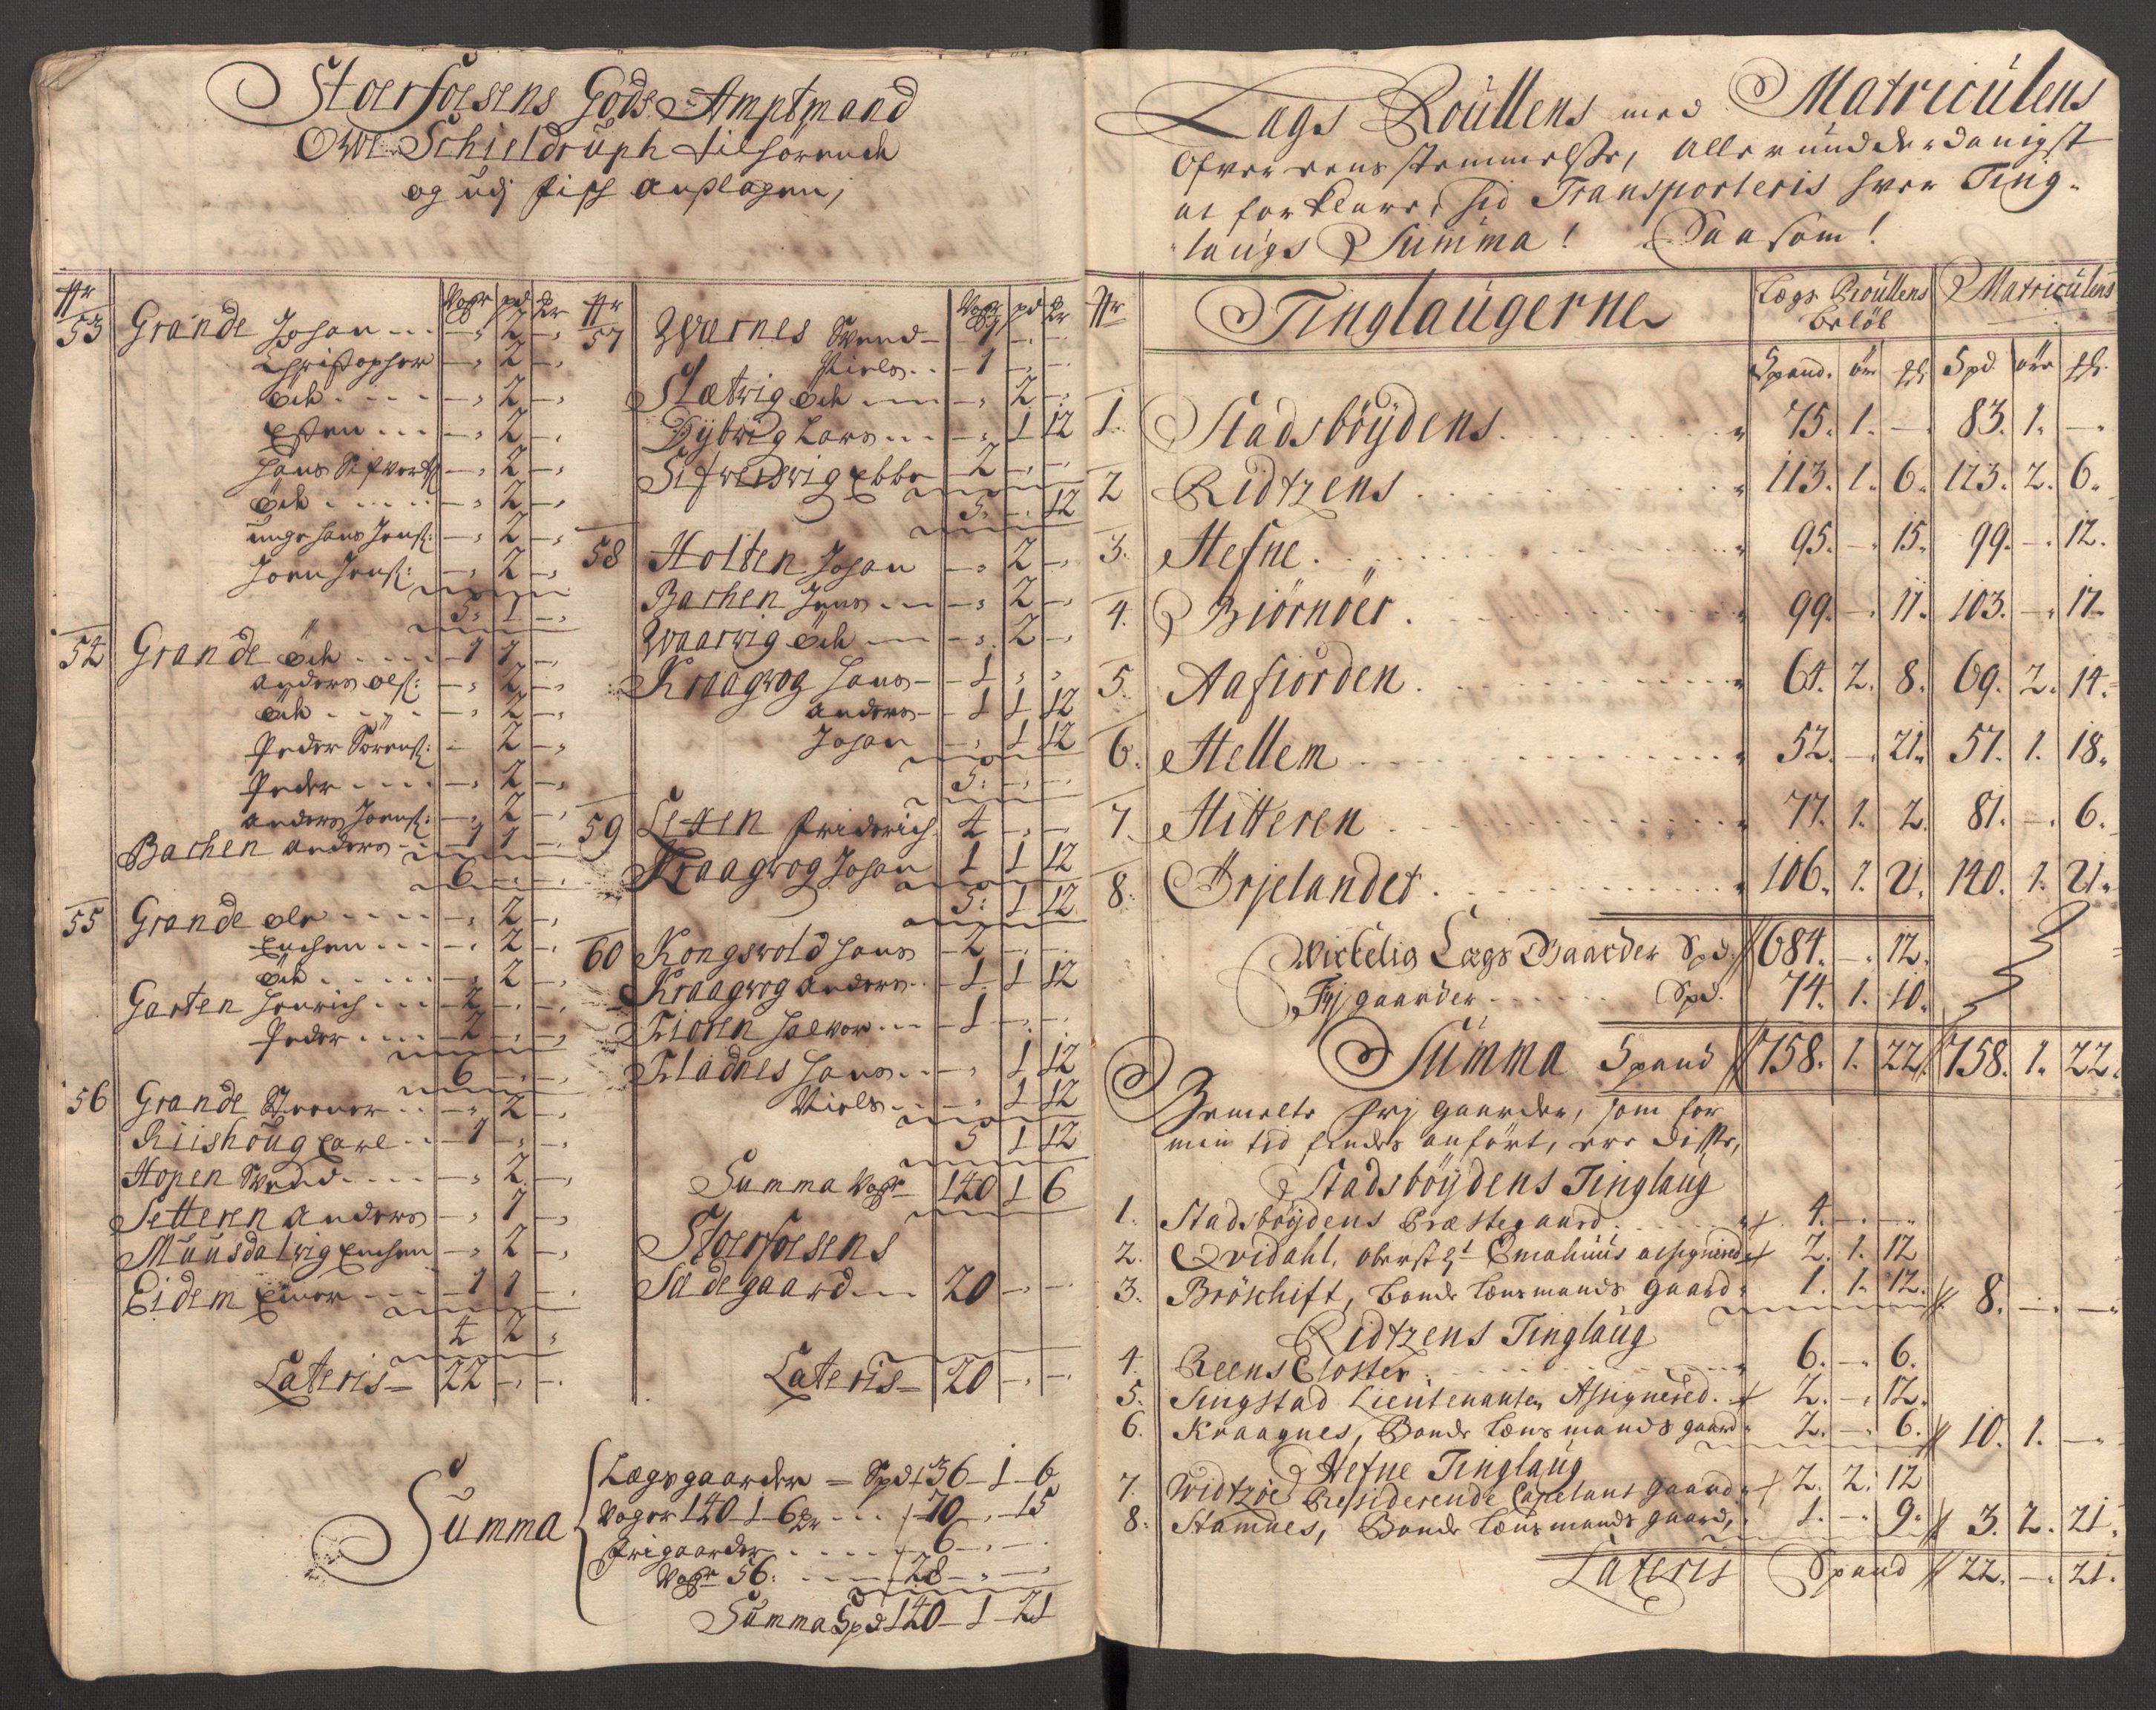 Stoerfosens Gods Amptmand
Owe Schieldruph tilhörende
og udj fisk anslagen;
Nr Voger pd Mr
53 Grande Johan ... - 2 -
Christopher - 2 -
öde .... - 2 -
Esten ... - 2 -
Hans Sifvertß - 2 -
öde ..... - 2 -
unge Hans Jensß: - 2 -
Joen Jensß: - 2 -
5. 1 -
54 Grande öde .... 1 1 -
Anders Olß: - 2 -
öde .... - 2 -
Peder Sörenß: - 2 -
Peder .... - 2 -
Anders Joenß: - 2 -
Bachen Anders - 1 1 -
6 - -
55 Grande Ole .... - 2 -
Enchen ... - 2 -
öde ..... - 2 -
Garten Henrich ... 2 - -
Peder .... 2 - -
6 - -
56 Grande Steener .. - 2 -
Riishöug Carl .. 1 - -
Hopen Svend .... - 2 -
Setteren Anders - 1 -
Muusdalwig Enchen - 2 -
Eidem Einer ... 1 1 -
4 2 -
Lateris 22 - -
Nr Voger pd Mr
57 Warnes Svend - 1 - -
Niels .. 1 - -
Slætwig öde ... - 2 -
Dybwig Lars ... - 1 12
Sifwerswig Ebbe 2 - -
5. - 12
58 Holten Johan - 2 -
Bachen Jens ... - 2 -
Waarwig öde ... - 2 -
Kraagwog Hans 1 - -
Anders 1 1 12
Johan - 1 12
5. - -
59 Lexen Friderich 4 - -
Kraagwog Johan 1 1 12
5. 1 12
60 Kongswold Hans 2 - -
Kraagwog Anders .. 1 1 12
Fioren Halvor ... 1 - -
Fladnes Hans .. - 1 12
Niels .. - 1 12
5 1 12
Summa Voger 140 1 6
Stoerfosens
Sædegaard ... 20 - -
Lateris 20 - -
Summa
Lægsgaarder - Spd 36 - 1 - 6
Voger 140 - 1 - 6 Mr ... 70 - 15
Frigaarder ..... 6 - -
Voger 56. .... 28 - -
Summa Spd 140 - 1 - 21
Lægs Roullens med Matriculens
Ofvereensstemmelße, allerunderdanigst
at forklare, hid Transporteris hver Ting-
laugs Summa! Saasom!
Nr Tinglaugerne Lægs Roullens beløb Matriculens
Spand. ör Spd. öre
1. Stadsböydens 75. 1. - 83. 1. -
2 Ridtzens 113. 1. 6. 123. 2. 6.
3. Hefne 95. - 15. 99. - 12.
4. Biörnöer 99. - 11. 103. - 17.
5. Aafiorden 64. 2. 8. 69. 2. 14.
6. Hellem 52. - 21. 57. 1. 18.
7. Hitteren 77. 1. 2. 81. - 6.
8. Örjelandet 106. 1. 21. 140. 1. 21.
Wirkelig Lægs Gaarder Spd. 684. - 12.
Frj gaarder ..... Spd. 74. 1. 10.
Summa Spand 758. 1. 22 758. 1. 22.
Bemelte Frj gaarder, som for
min tid findes anfört, ere disse,
Stadsböydens Tinglaug
1. Stadsböydens Præstegaard ..... 4. - -
2. Qvidahl, Oberst Lt Emahuus assignered 2. 1. 12
3. Bröschift, Bonde Lensmands gaard 1. 1. 12. 8. - -
Ridtzens Tinglaug
4. Reens Closter ..... 6. - 6.
5. Singstad Lieutenanten Assignered. 2. - 12.
6. Kraagnes, Bonde Lensmands gaard 2. - 6. 10. 1. -
Hefne Tinglaug
7. Widtzöe Residerende Capelans gaard 2. 2. 12
8. Stamnes, Bonde Lensmands gaard, 1. - 9. 3. 2. 21.
Lateris Spand 22. - 21.